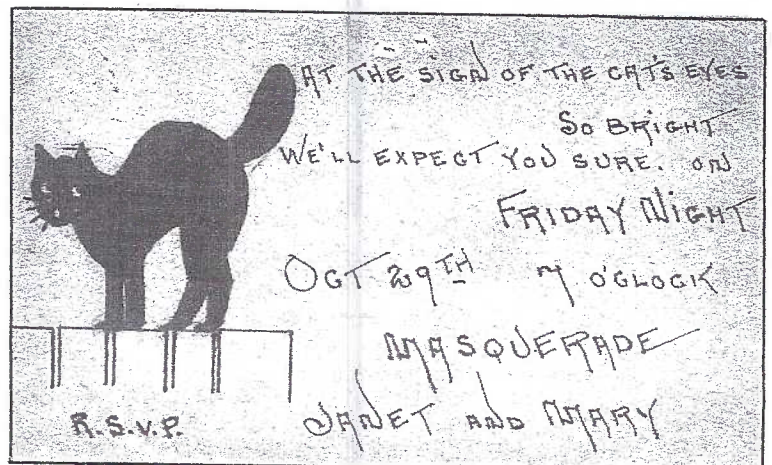 AT THE SIGN OF THE CAT'S EYES
SO BRIGHT
WE'LL EXPECT YOU SURE. ON
FRIDAY NIGHT
OCT 29TH 7 O'CLOCK
MASQUERADE
R.S.V.P. JANET AND MARY